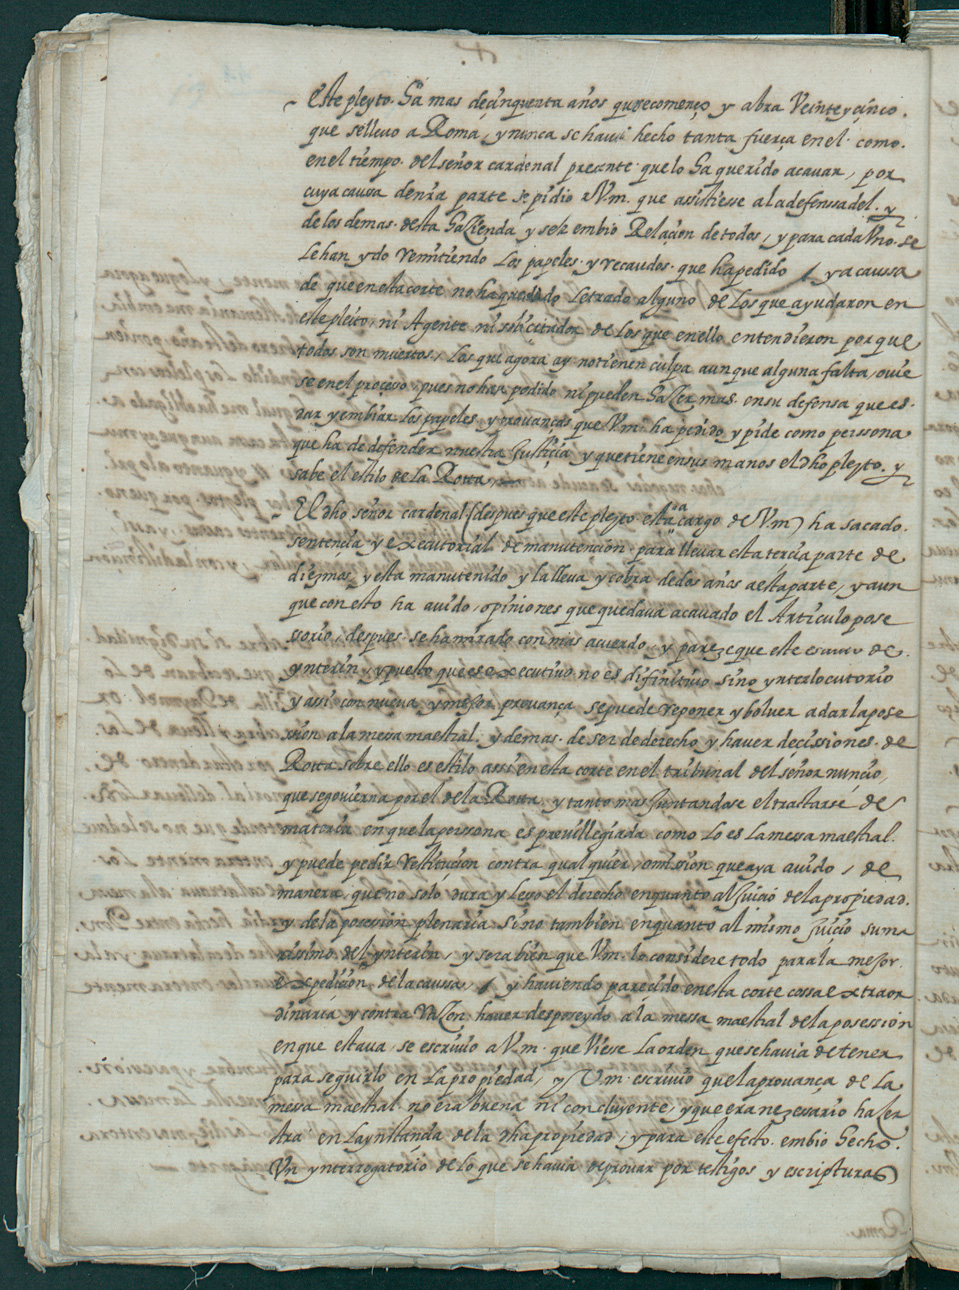 Este pleyto. Ha mas decinquenta años que se començo y abra Veinte y cinco.
que se lleuo a Roma, y nunca se hauia hecho tanta fuerça en el. como.
en el tiempo. del señor cardenal preçente que lo Ha querido acauar, por
cuya caussa denra parte se pidio a Vm. que assistiesse a la defenssa del. y
de los demas. desta Hazienda y se le embio Relaçion de todos, y para cada Vno. se
le han ydo remitiendo los papeles. y recaudos. que ha pedido / y a caussa
de que en esta corte no ha quedado Letrado alguno de los que ayudaron en
este pleito, ni Agente ni soliçitador de los que en ello entendieron por que
todos son muertos, Los que agora ay no tienen culpa aunque alguna falta, ouie
se en el proçeso, pues no han podido ni pueden Hazer mas. en su defensa que es.
tar y embiar los papeles y prouanças que Vm. ha pedido y pide como persona
que ha de defender nuestra Justiçia y que tiene en sus manos el dho pleyto. y
sabe el estilo de la Rotta
El dho señor cardenal (despues que este pleyto esta a cargo de Vm) ha sacado.
sentencia y executorial de manutencion para lleuar esta terçia parte de
diezmos y esta manutenido y la lleua y cobra de dos años a esta parte, y aun
que con esto ha auido opiniones que quedaua acauado el Articulo pose
ssorio, despues se ha mirado con mas acuerdo, y pareze que este es de
ynterin, y puesto que es executiuo no es difinitiuo sino ynterlocutorio
y assi con nueua y mejor prouança se puede reponer y boluer a dar la pose
sion a la mesa maestral. y demas. de ser de derecho y hauer decissiones. de
Rotta sobre ello es estilo assi en esta corte en el tribunal del señor nunçio,
que se gouierna por el de la Rotta. y tanto mas Juntandose el tractarse de
materia en que la persona es preuillegiada como lo es la messa maestral.
y puede pedir restituçion contra qualquier, omission que aya auido, de
manera, que no solo dura y el derecho en quanto al Juicio de la propiedad.
y de la posesion plenaria sino tambien en quanto al mismo juicio suma
rissimo del ynterin, y sera bien que Vm. lo considere todo para la mejor.
expedicion de la caussa, / y hauiendo pareçido en esta corte cossa extraor
dinaria y contra raZon hauer desposeydo a la messa maestral de la posession
en que estaua, se escriuio a V.m. que Viesse la orden que se hauia de tener
para seguirlo en la propiedad, y Vm. escriuio que la prouança de la
messa maestral no era buena ni concluyente, y que era nezessario hazer
otra en la ynstançia de la dha propiedad, y para este efecto. embio Hecho.
Vn ynterrogatorio de lo que se hauia de prouar por testigos y escripturas
Roma.